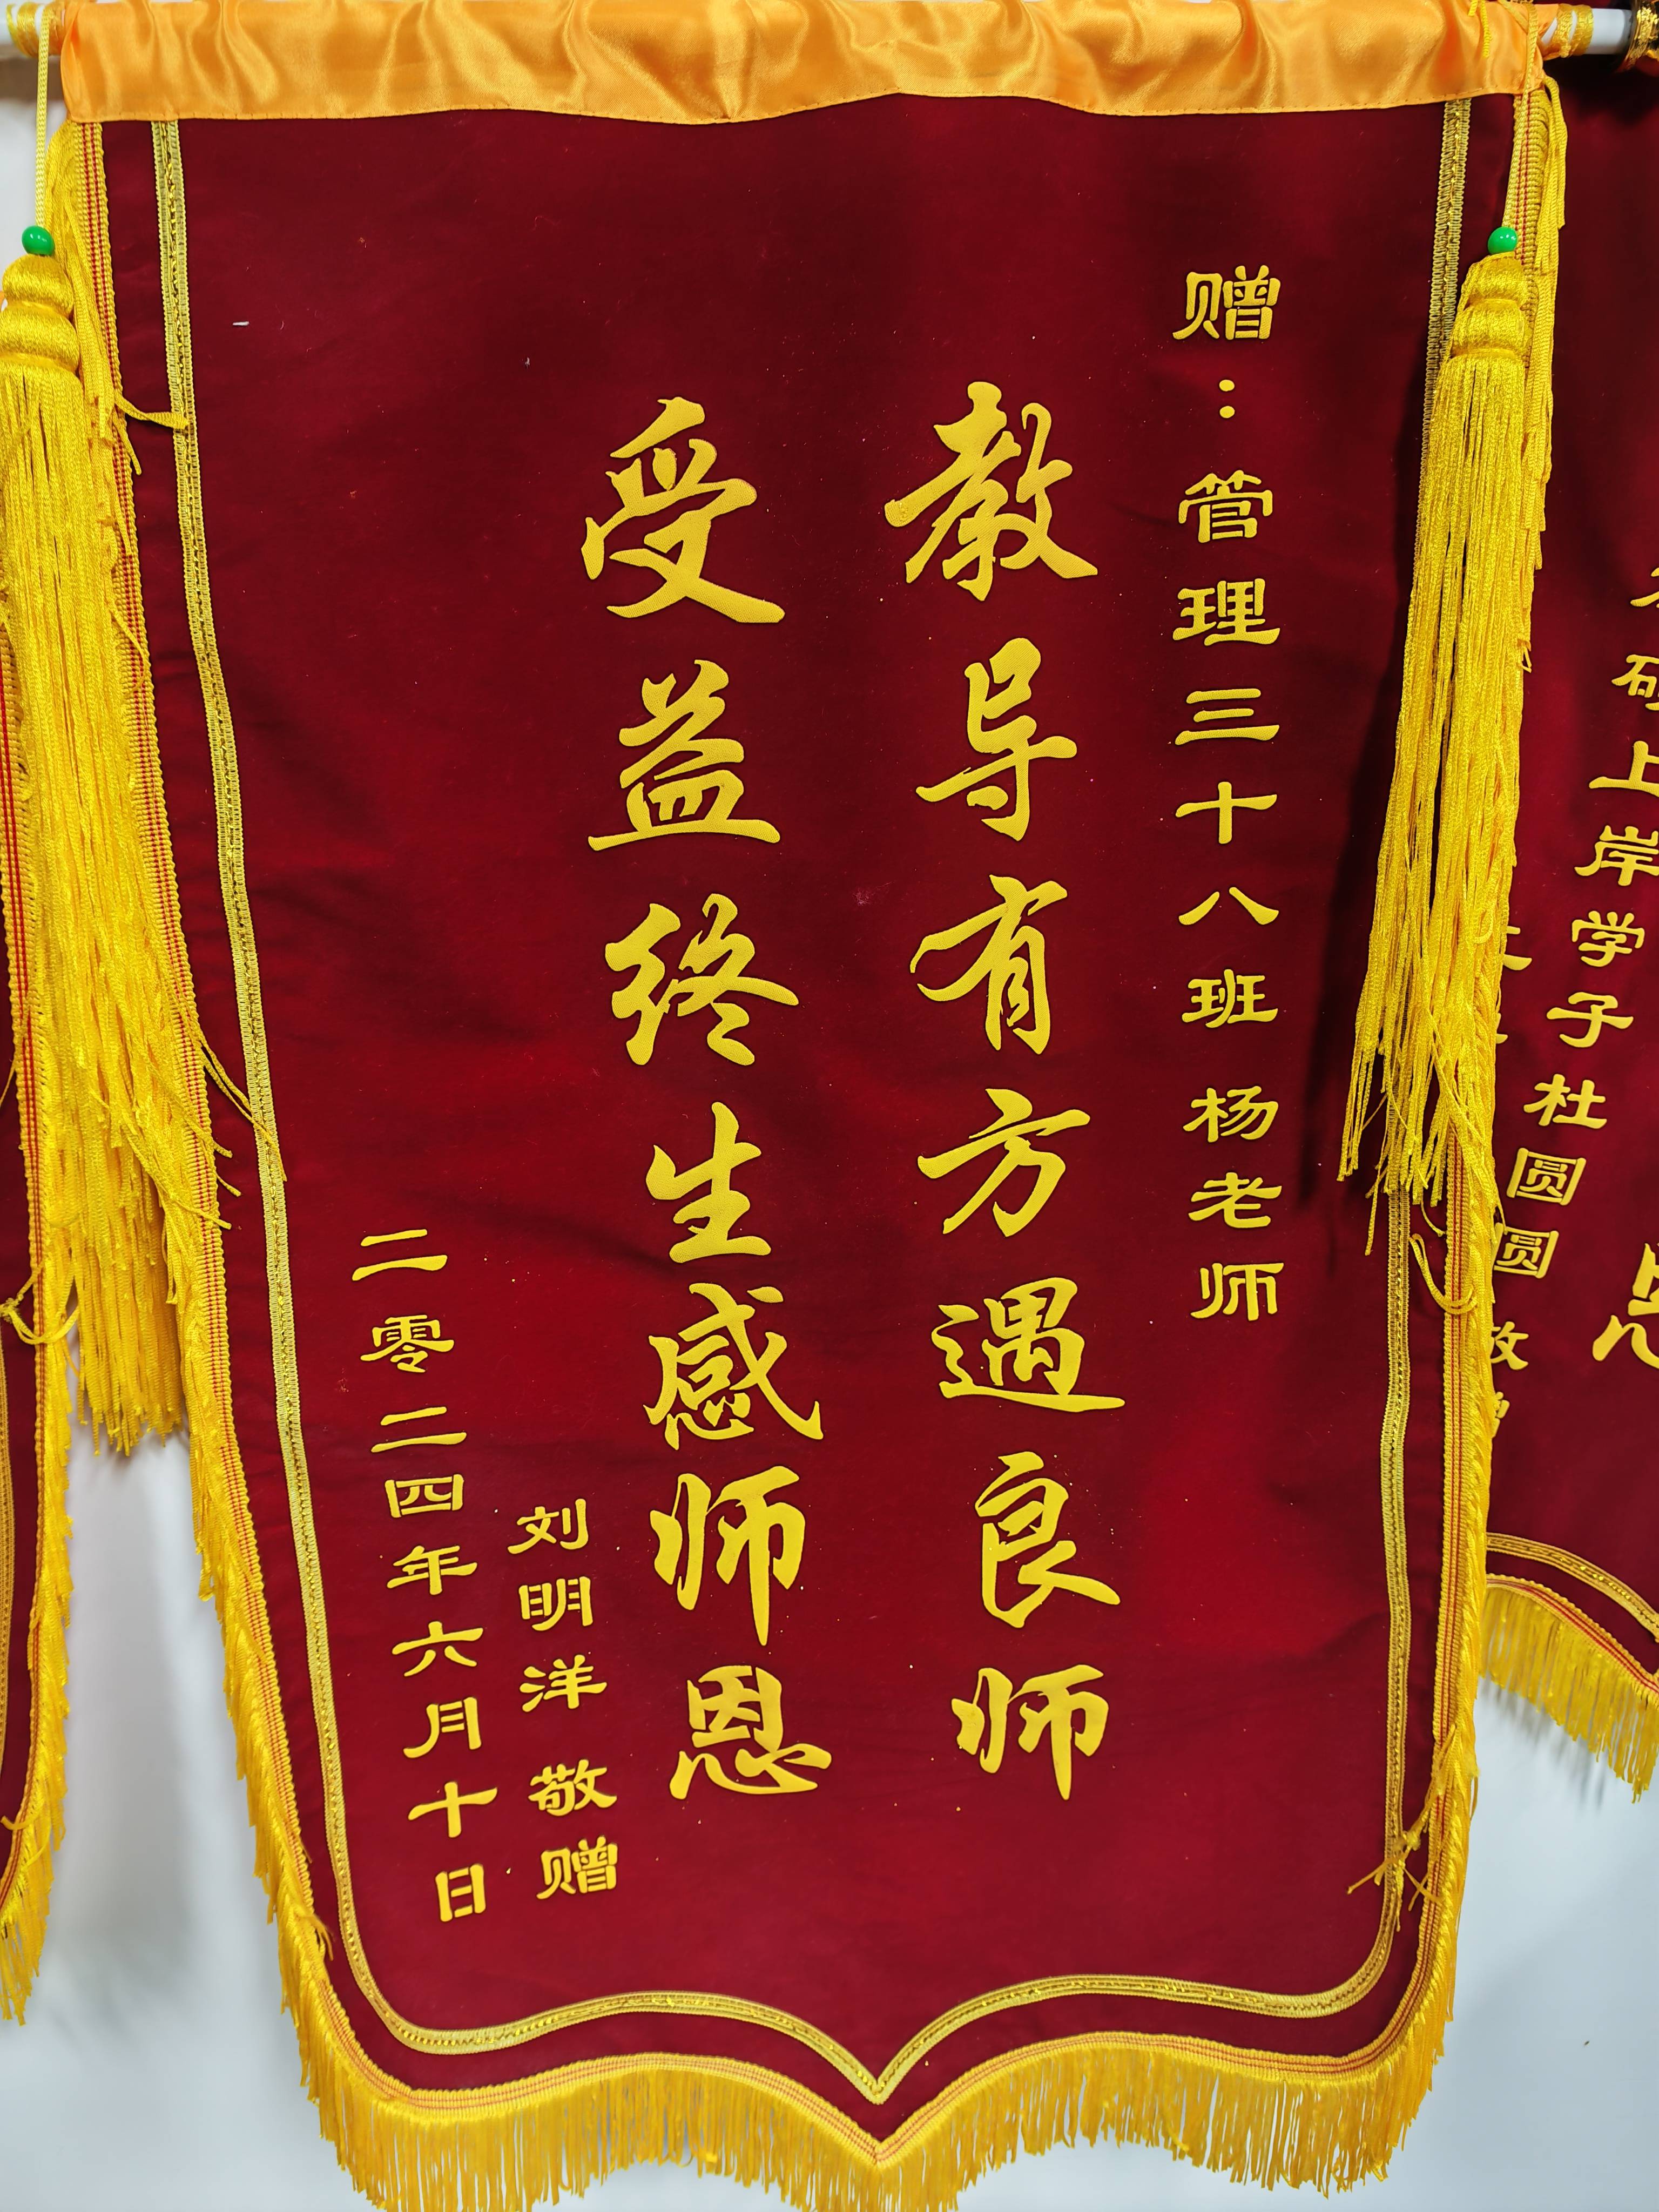 赠：管理三十八班 杨老师
教导有方遇良师
受益终生感师恩
刘明洋 敬赠
二零二四年六月十日
上岸学子杜圆圆